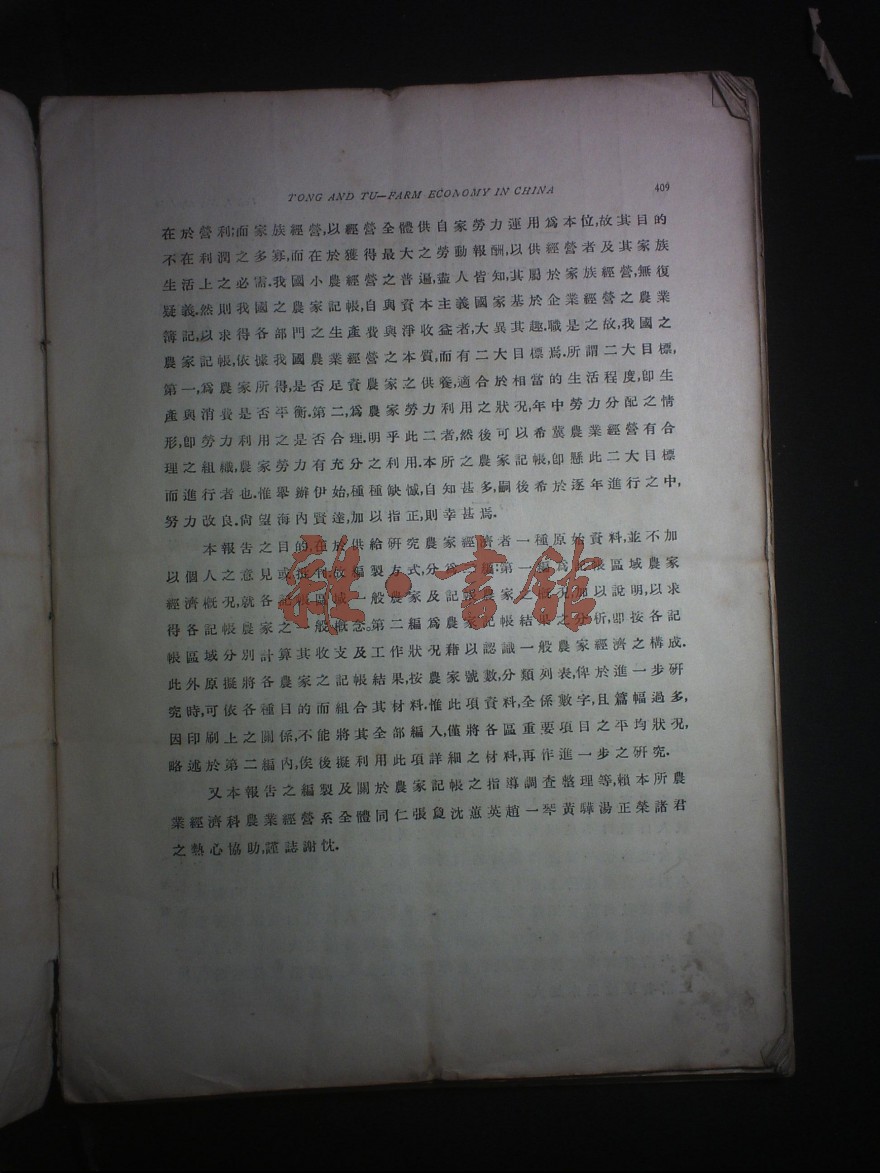 TONG AND TU—FARM ECONOMY IN CHINA 409
在於營利;而家族經營,以經營全體供自家勞力運用爲本位,故其目的
不在利潤之多寡,而在於獲得最大之勞動報酬,以供經營者及其家族
生活上之必需.我國小農經營之普遍,盡人皆知,其屬於家族經營,無復
疑義.然則我國之農家記帳,自與資本主義國家基於企業經營之農業
簿記,以求得各部門之生產費與淨收益者,大異其趣,職是之故,我國之
農家記帳,依據我國農業經營之本質,而有二大目標焉.所謂二大目標,
第一,爲農家所得,是否足資農家之供養,適合於相當的生活程度,卽生
產與消費是否平衡.第二,爲農家勞力利用之狀況,年中勞力分配之情
形,卽勞力利用之是否合理.明乎此二者,然後可以希冀農業經營有合
理之組織,農家勞力有充分之利用.本所之農家記帳,卽懸此二大目標
而進行者也.惟舉辦伊始,種種缺憾,自知甚多,嗣後希於逐年進行之中,
努力改良.尙望海內賢達,加以指正,則幸甚焉.
本報告之目的,在於供給研究農家經濟者一種原始資料,並不加
以個人之意見或批判.故編製方式,分爲二編:第一編爲記帳區域農家
經濟概況,就各記帳區域一般農家及記帳農家之概況加以說明,以求
得各記帳農家之一般概念。第二編爲農家記帳結果之分析,卽按各記
帳區域分別計算其收支及工作狀況藉以認識一般農家經濟之構成.
此外原擬將各農家之記帳結果,按農家號數,分類列表,俾於進一步研
究時,可依各種目的而組合其材料.惟此項資料,全係數字,且篇幅過多,
因印刷上之關係,不能將其全部編入,僅將各區重要項目之平均狀況,
略述於第二編內,俟後擬利用此項詳細之材料,再作進一步之研究.
又本報告之編製及關於農家記帳之指導調查整理等,賴本所農
業經濟科農業經營系全體同仁張 沈蕙英趙一琴黃驊湯正榮諸君
之熱心協助,謹誌謝忱.
雜·書館